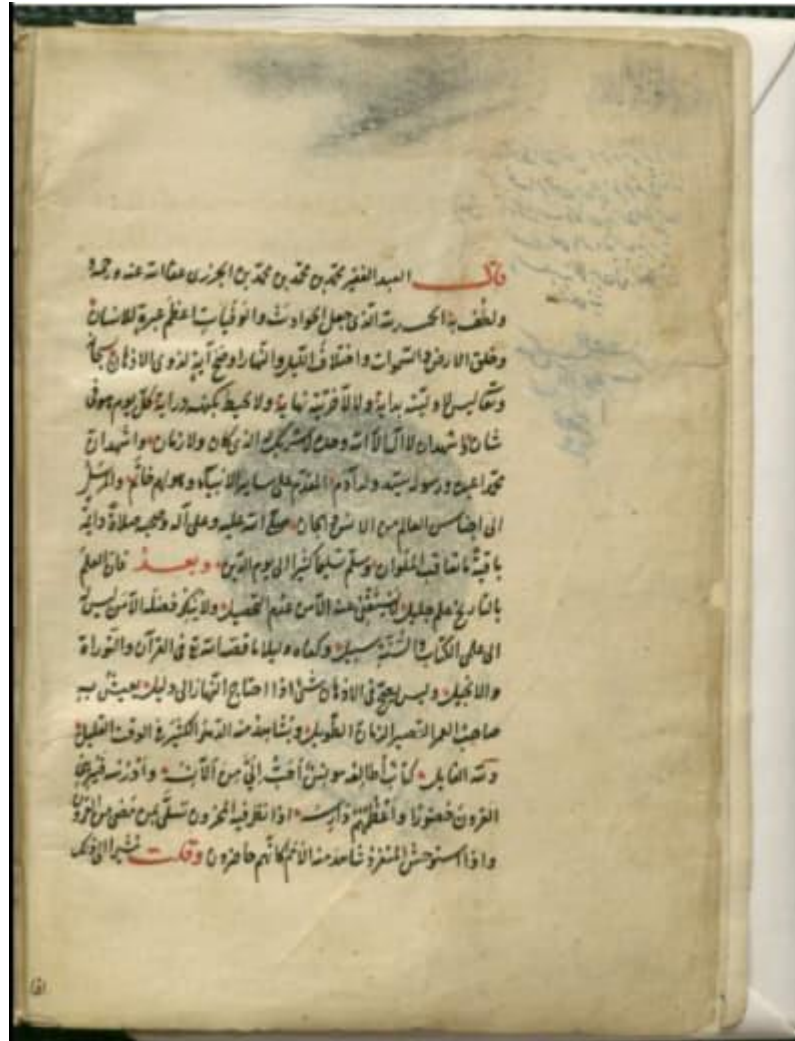 قال العبد الفقير محمد بن محمد بن محمد بن الجزري عفا الله عنه ورحمه
ولطف به الحمد لله الذى جعل الحوادث والوفيات اعظم عبرة للانسان
وخلق الارض والسموات واختلاف الليل والنهار اوضح آية لذوى الاذهان سبحانه
وتعا ليس لاوليته بداية ولا لآخريته نهاية ولا تحيط بكنهه دراية كل يوم هو فى
شان واشهد ان لا اله الا الله وحده لا شريك له الذى كان ولا زمان واشهد ان
محمدا عبده ورسوله سيد ولد آدم المقدم على ساير الانبياء وهو لهم خاتم والمرسل
الى اجناس العالم من الانس والجان صلى الله عليه وعلى آله وصحبه صلاة دايمة
باقية ما تعاقب الملوان وسلم تسليما كثيرا الى يوم الدين وبعد فان العلم
بالتاريخ علم جليل لا يستغنى عنه الا من عدم التحصيل ولا ينكر فضله الا من ليس له
الى على الكتاب والسنة سبيل وكفاه دليلا ما قصه الله تع فى القرآن والتوراة
والانجيل وليس يصح فى الاذهان شئ اذا احتاج النهار الى دليل يعيش به
صاحب العمر القصير الزمان الطويل ويشاهد منه الدهور الكثيرة فى الوقت القليل
ولله القايل كتاب أطالعه مونس أحب إلي من الآنسه وأدرسه فيريني
القرون حضورا وأعظمهم دارسه اذا نظر فيه المحزون تسلى بمن مضى من القرون
واذا استوحش المنفرد شاهد منه الامم كانهم حاضرون وقلت مشيرا الى ذلك